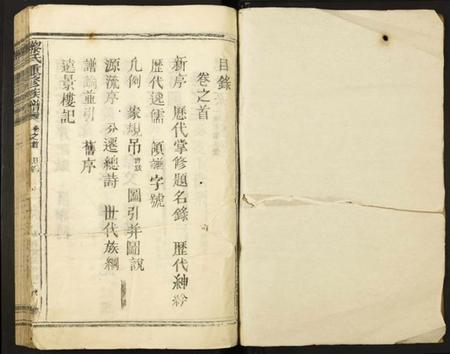 目錄
卷之首
新序 歷代掌修題名錄 歷代紳衿
歷代逸儒 領譜字號
凡例 家規 吊 圖引并圖說
源流序 分遷總詩 世代族綱
譜論並引 舊序
遠景樓記
氏重修族譜 卷之首 目錄